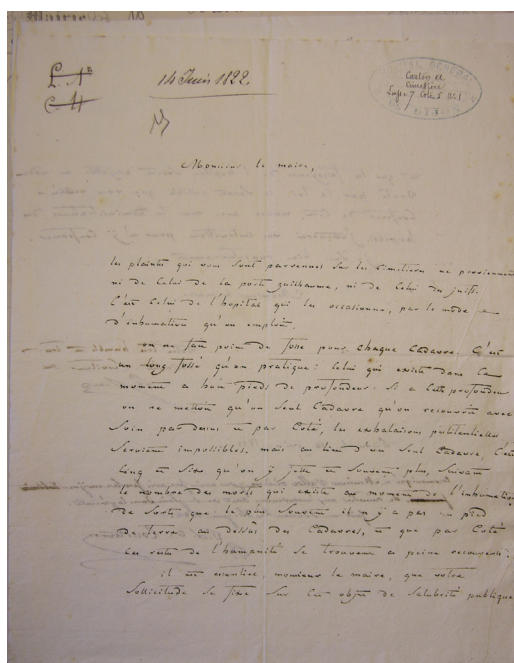 14 Juin 1822.
Carton et
Cimetière
Monsieur le maire,
les plaintes qui vous sont parvenues sur les Cimetieres ne proviennent
ni de Celui de la porte guillaume, ni de Celui des juifs.
C'est Celui de l'hopital qui les occasionne, par le mode
d'inhumation qu'on emploit.
on ne fait point de fosse pour chaque Cadavre. C'est
un long fossé qu'on pratique: Celui qui existe dans Ce
moment a huit pieds de profondeur. Si a Cette profondeur
on ne mettoit qu'un Seul Cadavre qu'on recouvrit avec
Soin par dessus et par Coté, les exhalaisons putilentielles
Seroient impossibles, mais au lieu d'un Seul Cadavre, C'est
Cinq et Six qu'on y jette et Souvent plus, Suivant
le nombre des morts qui existe au moment de l'inhumation
de Sorte que le plus Souvent il n'y a pas un pied
de terre au dessus des Cadavres, et que par Coté
Ces restes de l'humanité Se trouvent a peine recouverts.
il est essentiel, monsieur le maire, que votre
Sollicitude Se fixe Sur Cet objet de Salubrité publique